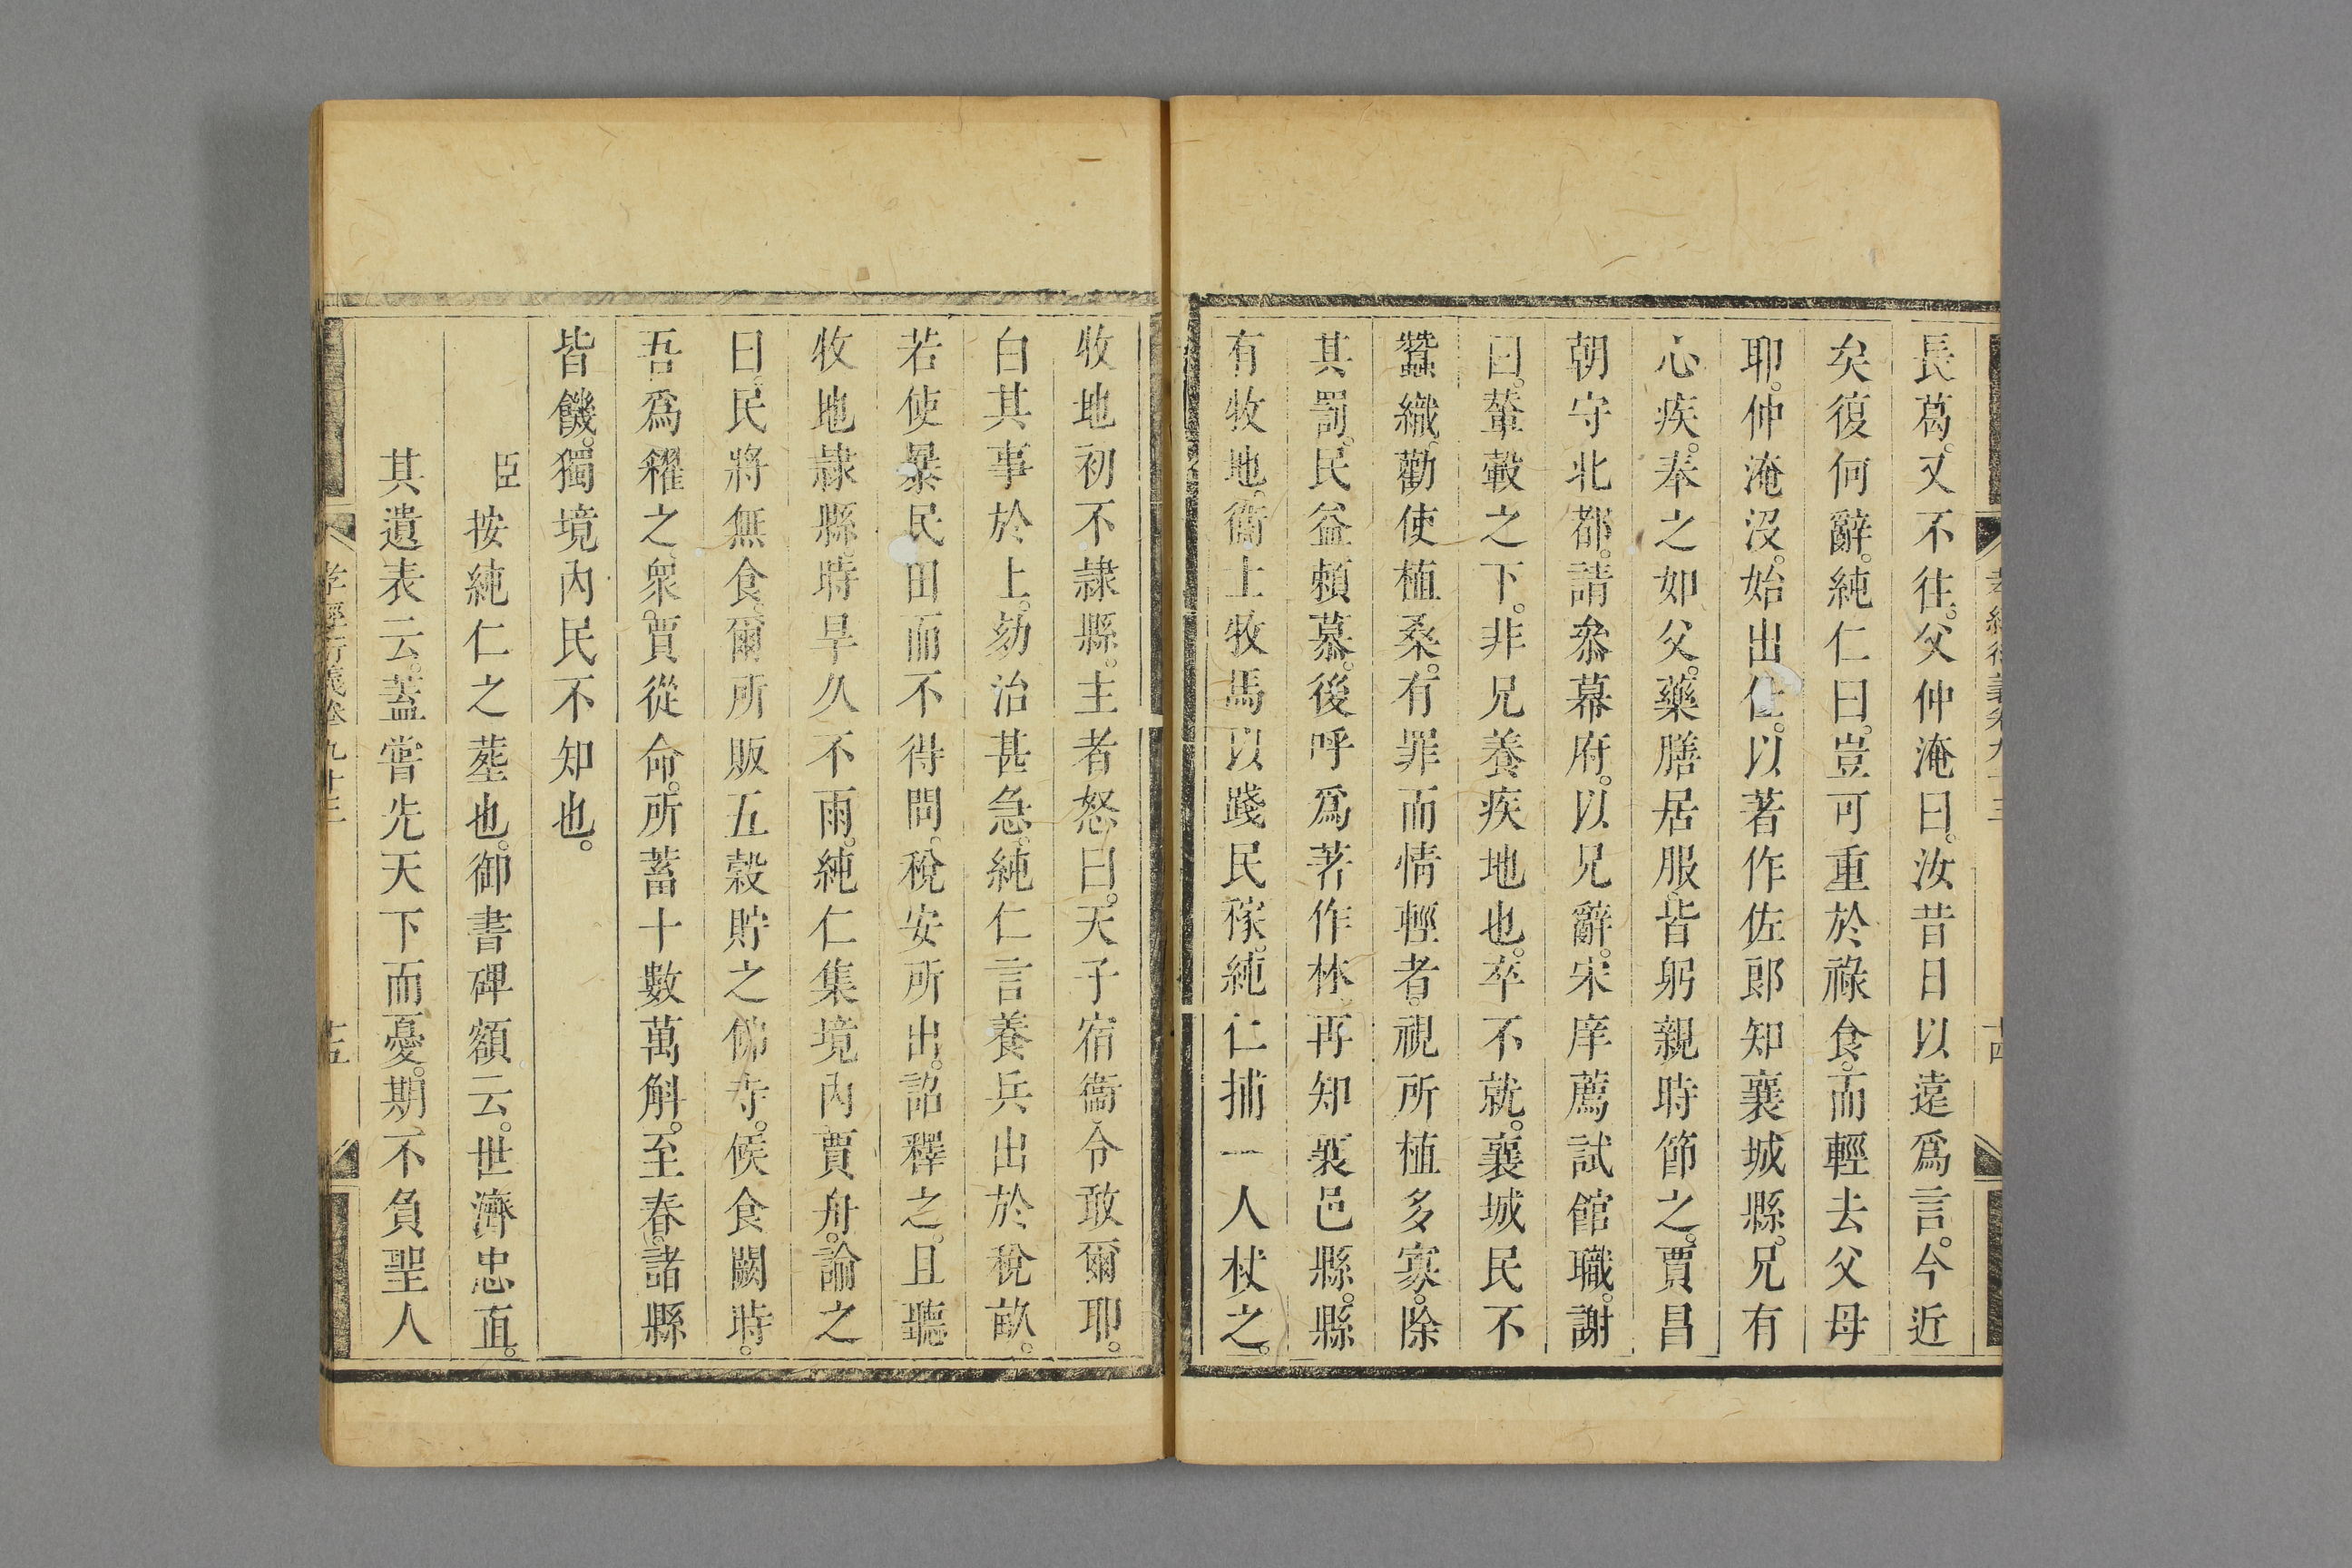 長葛。又不往。父仲淹曰。汝昔日以遠爲言。今近
矣。復何辭。純仁曰。豈可重於祿食。而輕去父母
耶。仲淹沒。始出仕。以著作佐郎知襄城縣。兄有
心疾。奉之如父。藥膳居服。皆躬親時節之。賈昌
朝守北都。請參幕府。以兄辭。宋庠薦試館職。謝
曰。輦轂之下。非兄養疾地也。卒不就。襄城民不
蠶織。勸使植桑。有罪而情輕者。視所植多寡。除
其罰。民益賴慕。後呼爲著作林。再知襄邑縣。縣
有牧地。衞士牧馬以踐民稼。純仁捕一人杖之。
牧地初不隷縣。主者怒曰。天子宿衞令敢爾耶。
白其事於上。劾治甚急。純仁言養兵出於稅畝。
若使暴民田而不得問。稅安所出。詔釋之。且聽
牧地隷縣。時旱久不雨。純仁集境內賈舟。諭之
曰。民將無食。爾所販五榖貯之佛寺。候食闕時。
吾爲糴之。衆賈從命。所蓄十數萬斛。至春。諸縣
皆饑。獨境內民不知也。
臣按純仁之塟也。御書碑額云。世濟忠直。
其遺表云。蓋嘗先天下而憂。期不負聖人
孝經衍義卷九十三